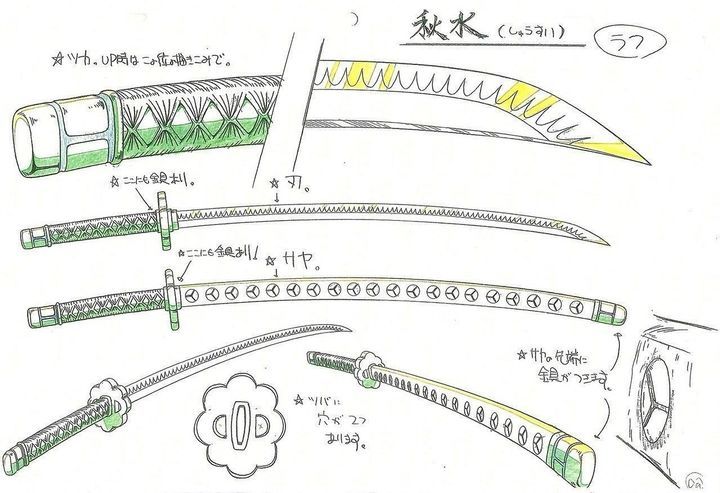 秋水 (しゅうすい) ラフ
☆ツカ。UP時はこの位の描きこみで。
☆ここにも金具あり。
☆刃。
☆ここにも金具あり!
☆サヤ。
☆サヤの先端に
金具がつきます。
☆ツバに
穴が2つ
あります。